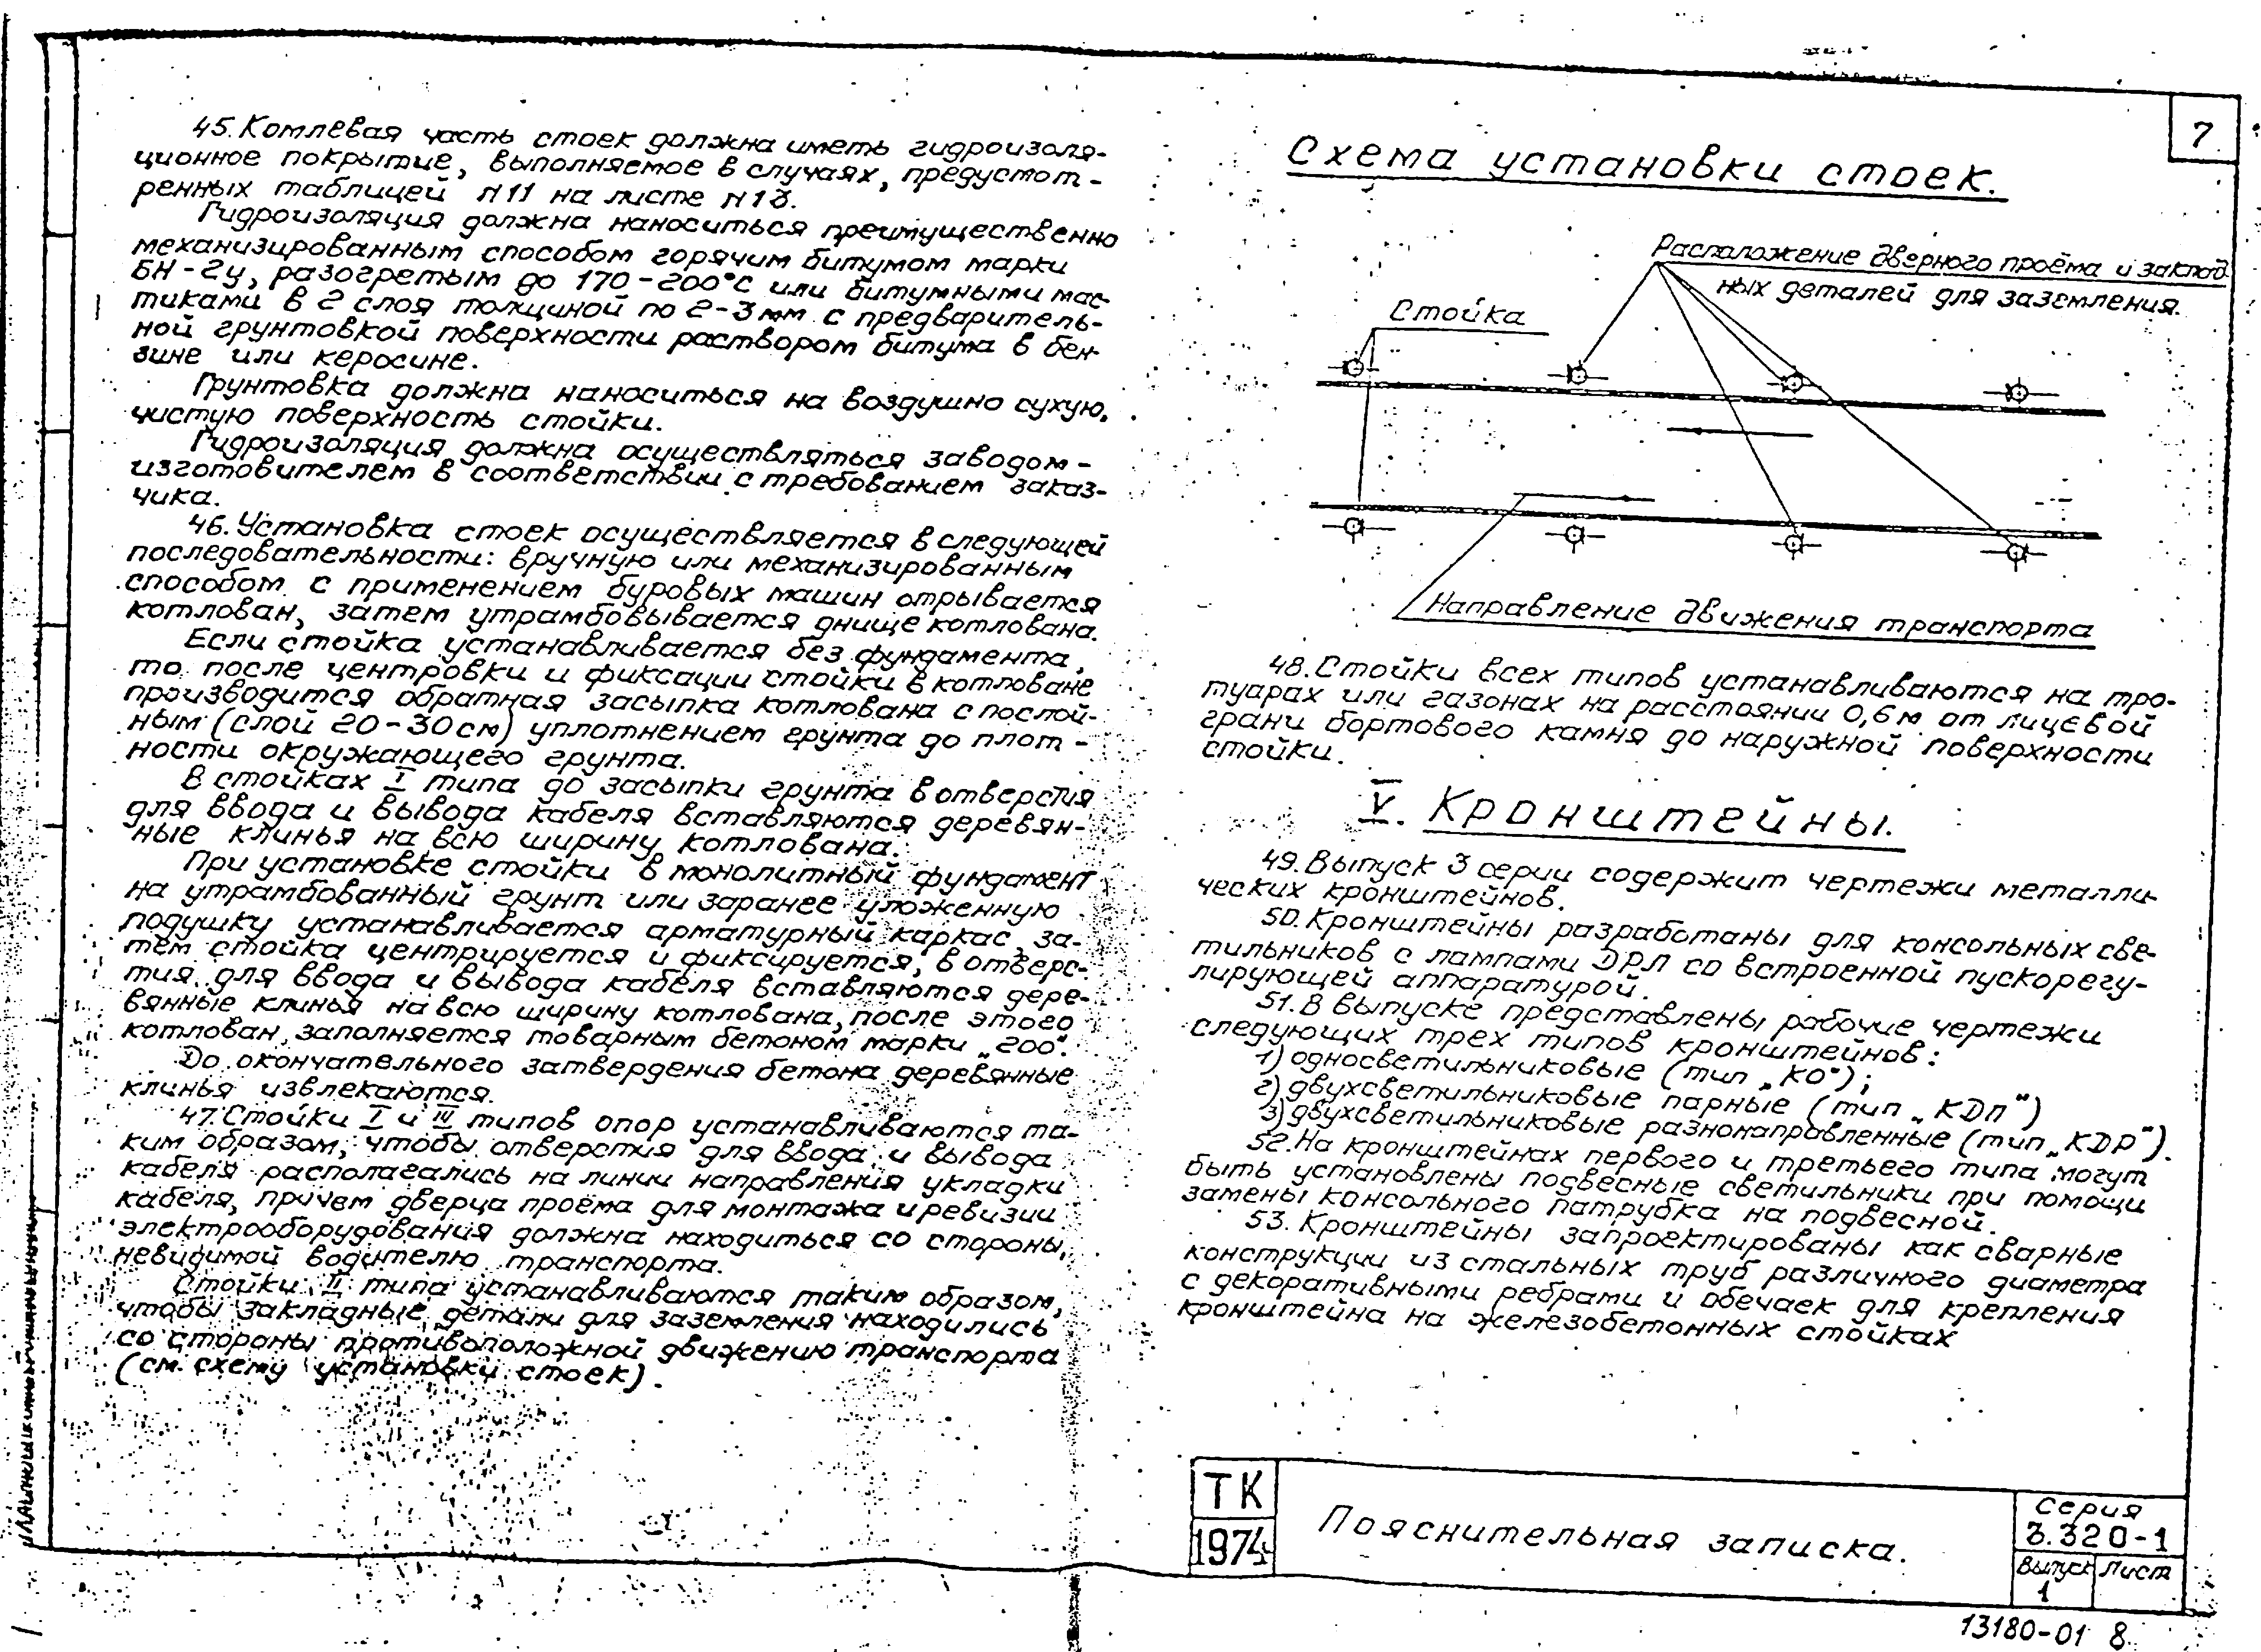 45. Комлевая часть стоек должна иметь гидроизоля-
ционное покрытие, выполняемое в случаях, предусмот-
ренных таблицей N11 на листе N13.
Гидроизоляция должна наноситься преимущественно
механизированным способом горячим битумом марки
БН-2у, разогретым до 170-200°С или битумными мас-
тиками в 2 слоя толщиной по 2-3мм с предваритель-
ной грунтовкой поверхности раствором битума в бен-
зине или керосине.
Грунтовка должна наноситься на воздушно сухую,
чистую поверхность стойки.
Гидроизоляция должна осуществляться заводом-
изготовителем в соответствии с требованием заказ-
чика.
46. Установка стоек осуществляется в следующей
последовательности: вручную или механизированным
способом с применением буровых машин отрывается
котлован, затем утрамбовывается днище котлована.
Если стойка устанавливается без фундамента,
то после центровки и фиксации стойки в котловане
производится обратная засыпка котлована с послой-
ным (слой 20-30см) уплотнением грунта до плот-
ности окружающего грунта.
В стойках I типа до засыпки грунта в отверстия
для ввода и вывода кабеля вставляются деревян-
ные клинья на всю ширину котлована.
При установке стойки в монолитный фундамент
на утрамбованный грунт или заранее уложенную
подушку устанавливается арматурный каркас, за-
тем стойка центрируется и фиксируется, в отверс-
тия для ввода и вывода кабеля вставляются дере-
вянные клинья на всю ширину котлована, после этого
котлован заполняется товарным бетоном марки „200".
До окончательного затвердения бетона деревянные
клинья извлекаются.
47. Стойки I и III типов опор устанавливаются та-
ким образом, чтобы отверстия для ввода и вывода
кабеля располагались на линии направления укладки
кабеля, причем дверца проёма для монтажа и ревизии
электрооборудования должна находиться со стороны,
невидимой водителю транспорта.
Стойки II типа устанавливаются таким образом,
чтобы закладные детали для заземления находились
со стороны противоположной движению транспорта
(см. схему установки стоек).
7
Схема установки стоек.
Расположение дверного проёма и заклад
ных деталей для заземления.
Стойка
Направление движения транспорта
48. Стойки всех типов устанавливаются на тро-
туарах или газонах на расстоянии 0,6м от лицевой
грани бортового камня до наружной поверхности
стойки.
V. Кронштейны.
49. Выпуск 3 серии содержит чертежи металли-
ческих кронштейнов.
50. Кронштейны разработаны для консольных све-
тильников с лампами ДРЛ со встроенной пускорегу-
лирующей аппаратурой.
51. В выпуске представлены рабочие чертежи
следующих трех типов кронштейнов:
1) односветильниковые (тип „КО");
2) двухсветильниковые парные (тип „КДП")
3) двухсветильниковые разнонаправленные (тип „КДР").
52. На кронштейнах первого и третьего типа могут
быть установлены подвесные светильники при помощи
замены консольного патрубка на подвесной.
53. Кронштейны запроектированы как сварные
конструкции из стальных труб различного диаметра
с декоративными ребрами и обечаек для крепления
кронштейна на железобетонных стойках
ТК
1974
Пояснительная записка.
Серия
3.320-1
Выпуск Лист
1
13180-01 8